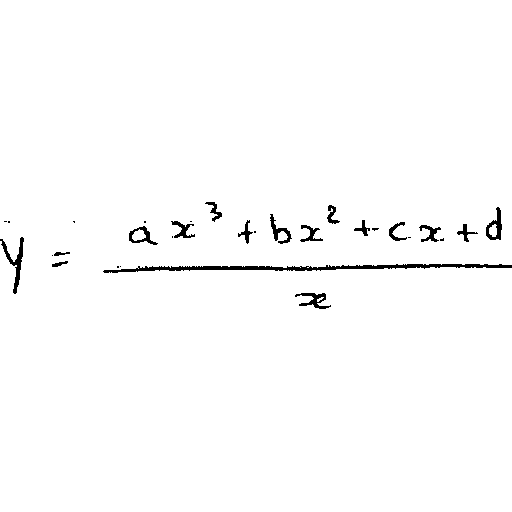 y = \frac{ax^3 + bx^2 + cx + d}{x}